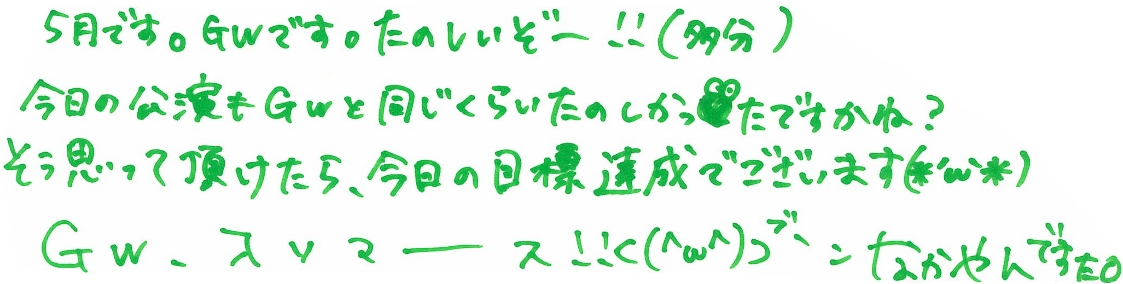 5月です。GWです。たのしいぞー!!(多分)
今日の公演もGWと同じくらいたのしかったですかね?
そう思って頂けたら、今日の目標達成でございます(*'ω'*)
GW、スマース!!<(^ω^)> なかやんですた。